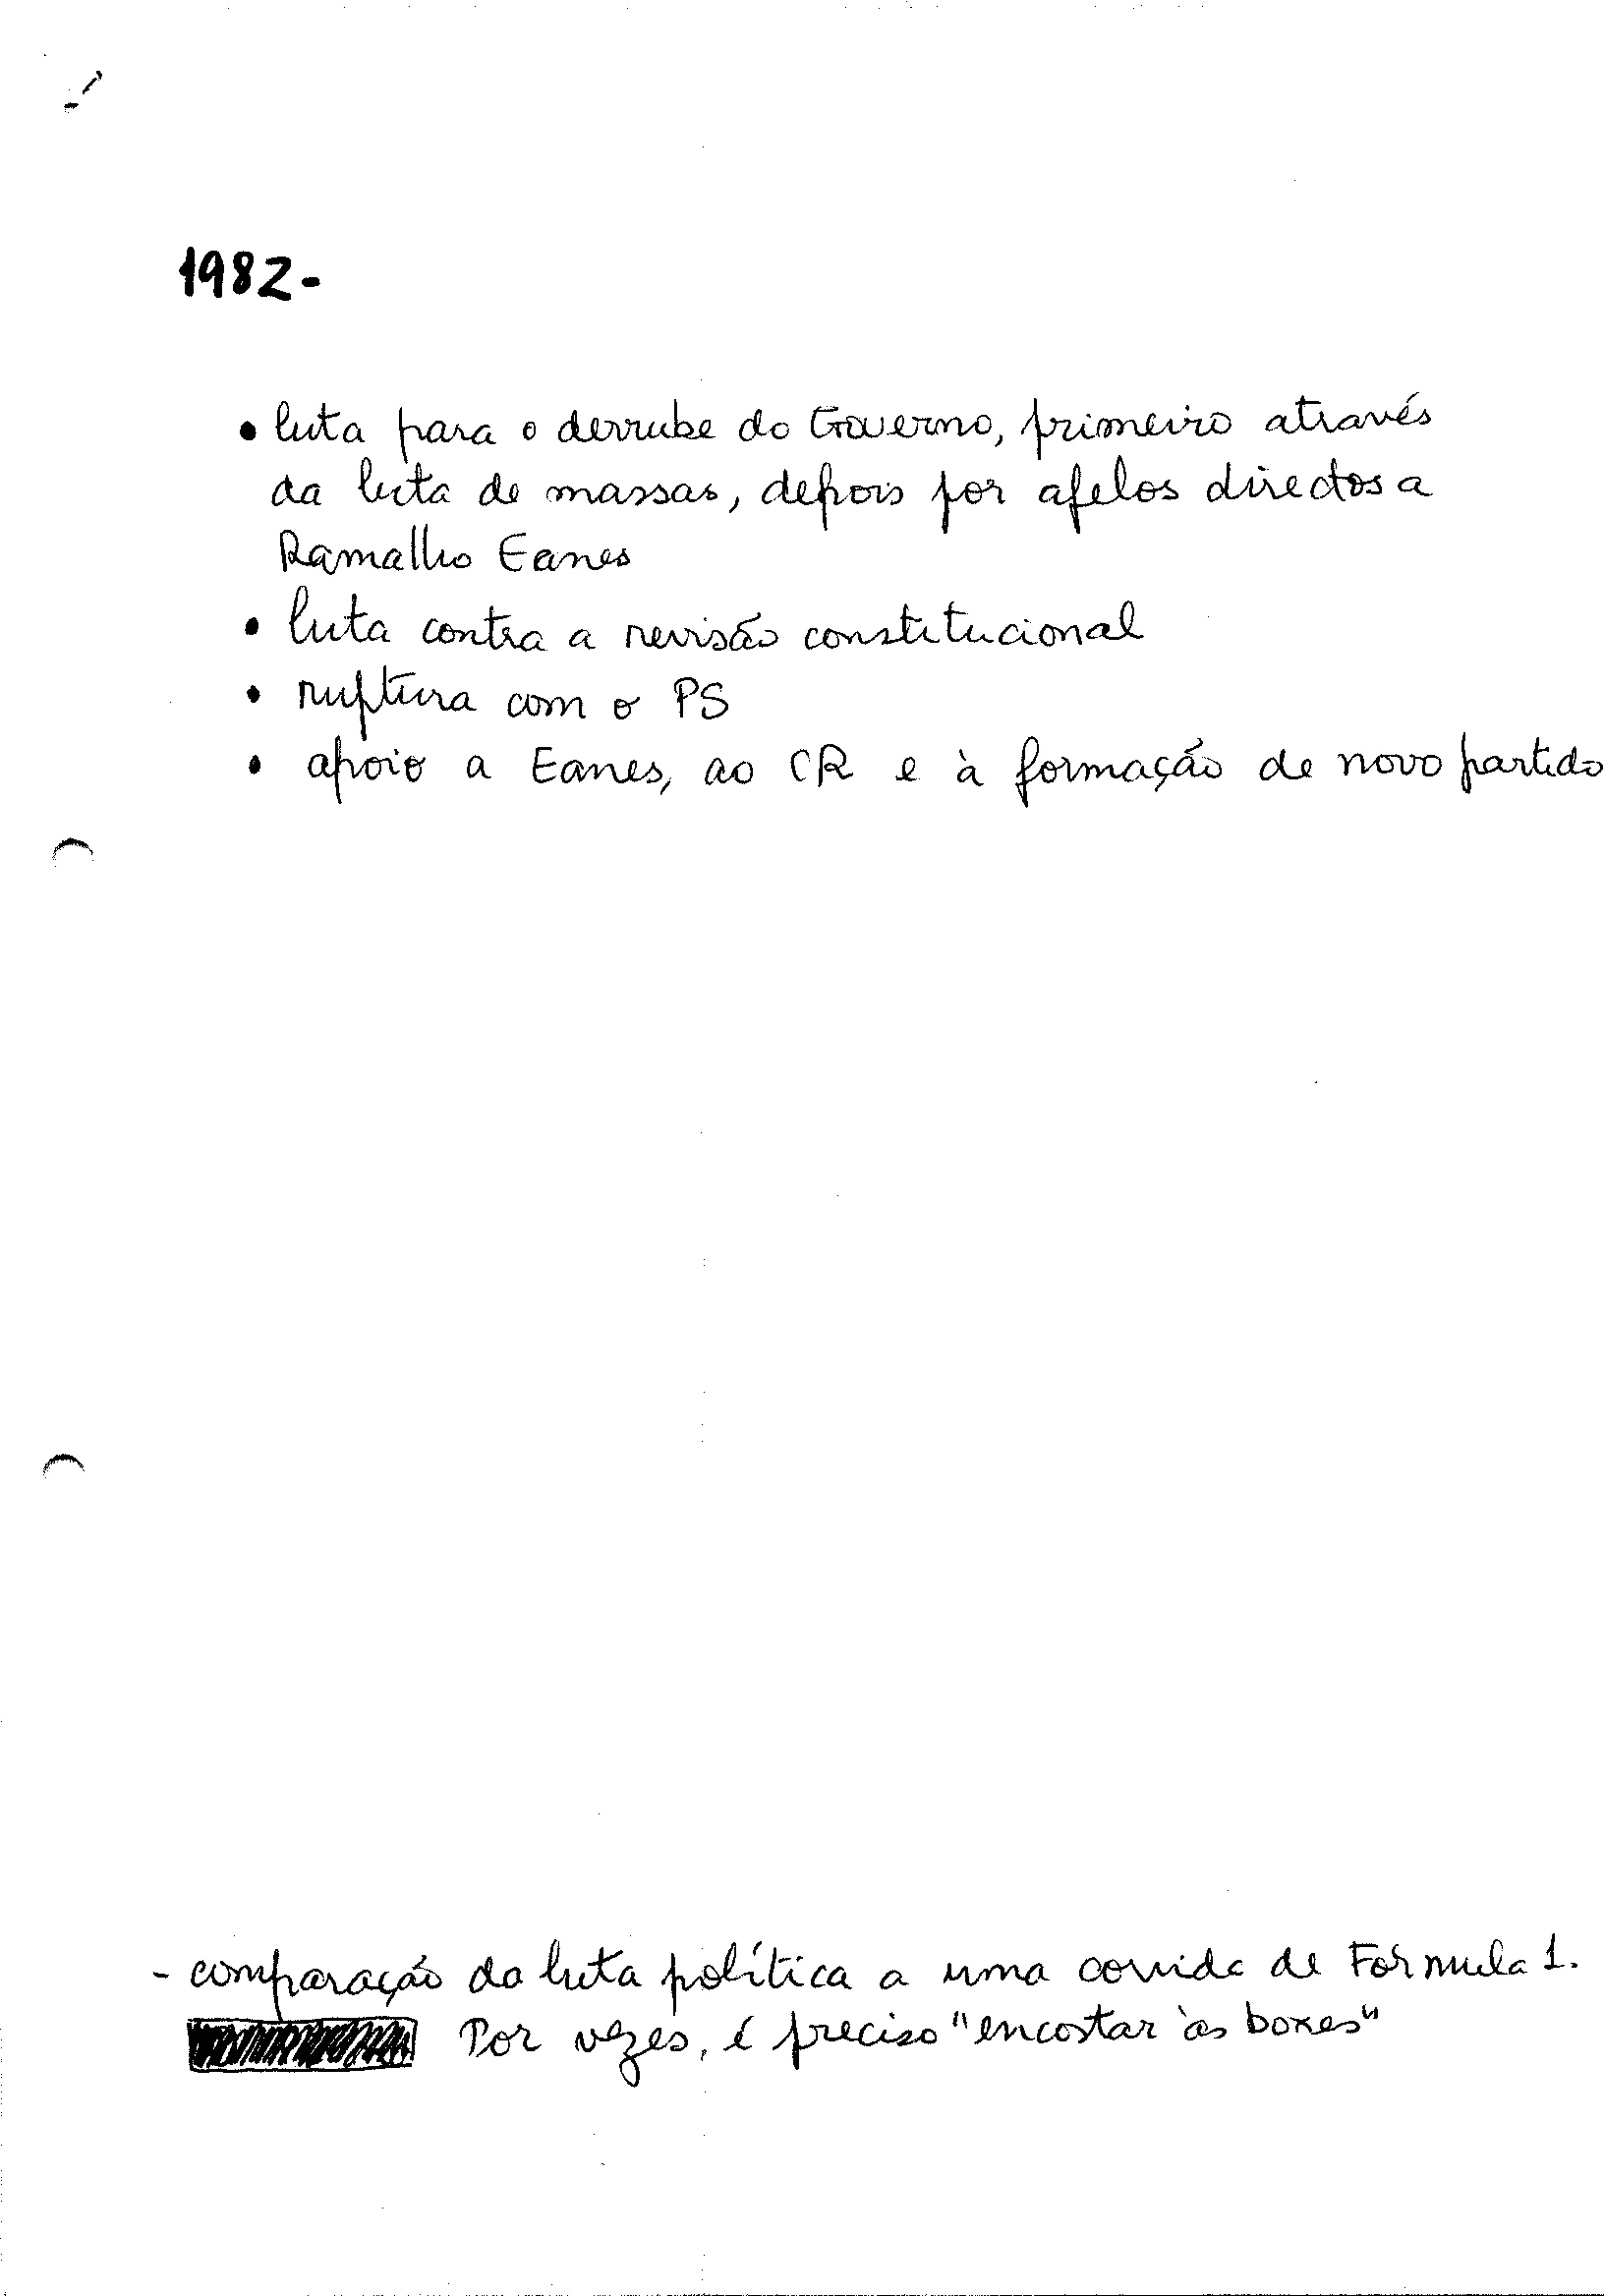 1982-
• luta para o derrube do Governo, primeiro através
da luta de massas, depois por apelos directos a
Ramalho Eanes
• luta contra a revisão constitucional
• ruptura com o PS
• apoio a Eanes, ao CR e à formação de novo partido
- comparação da luta política a uma corrida de Fórmula 1.
Por vezes, é preciso "encostar às boxes"